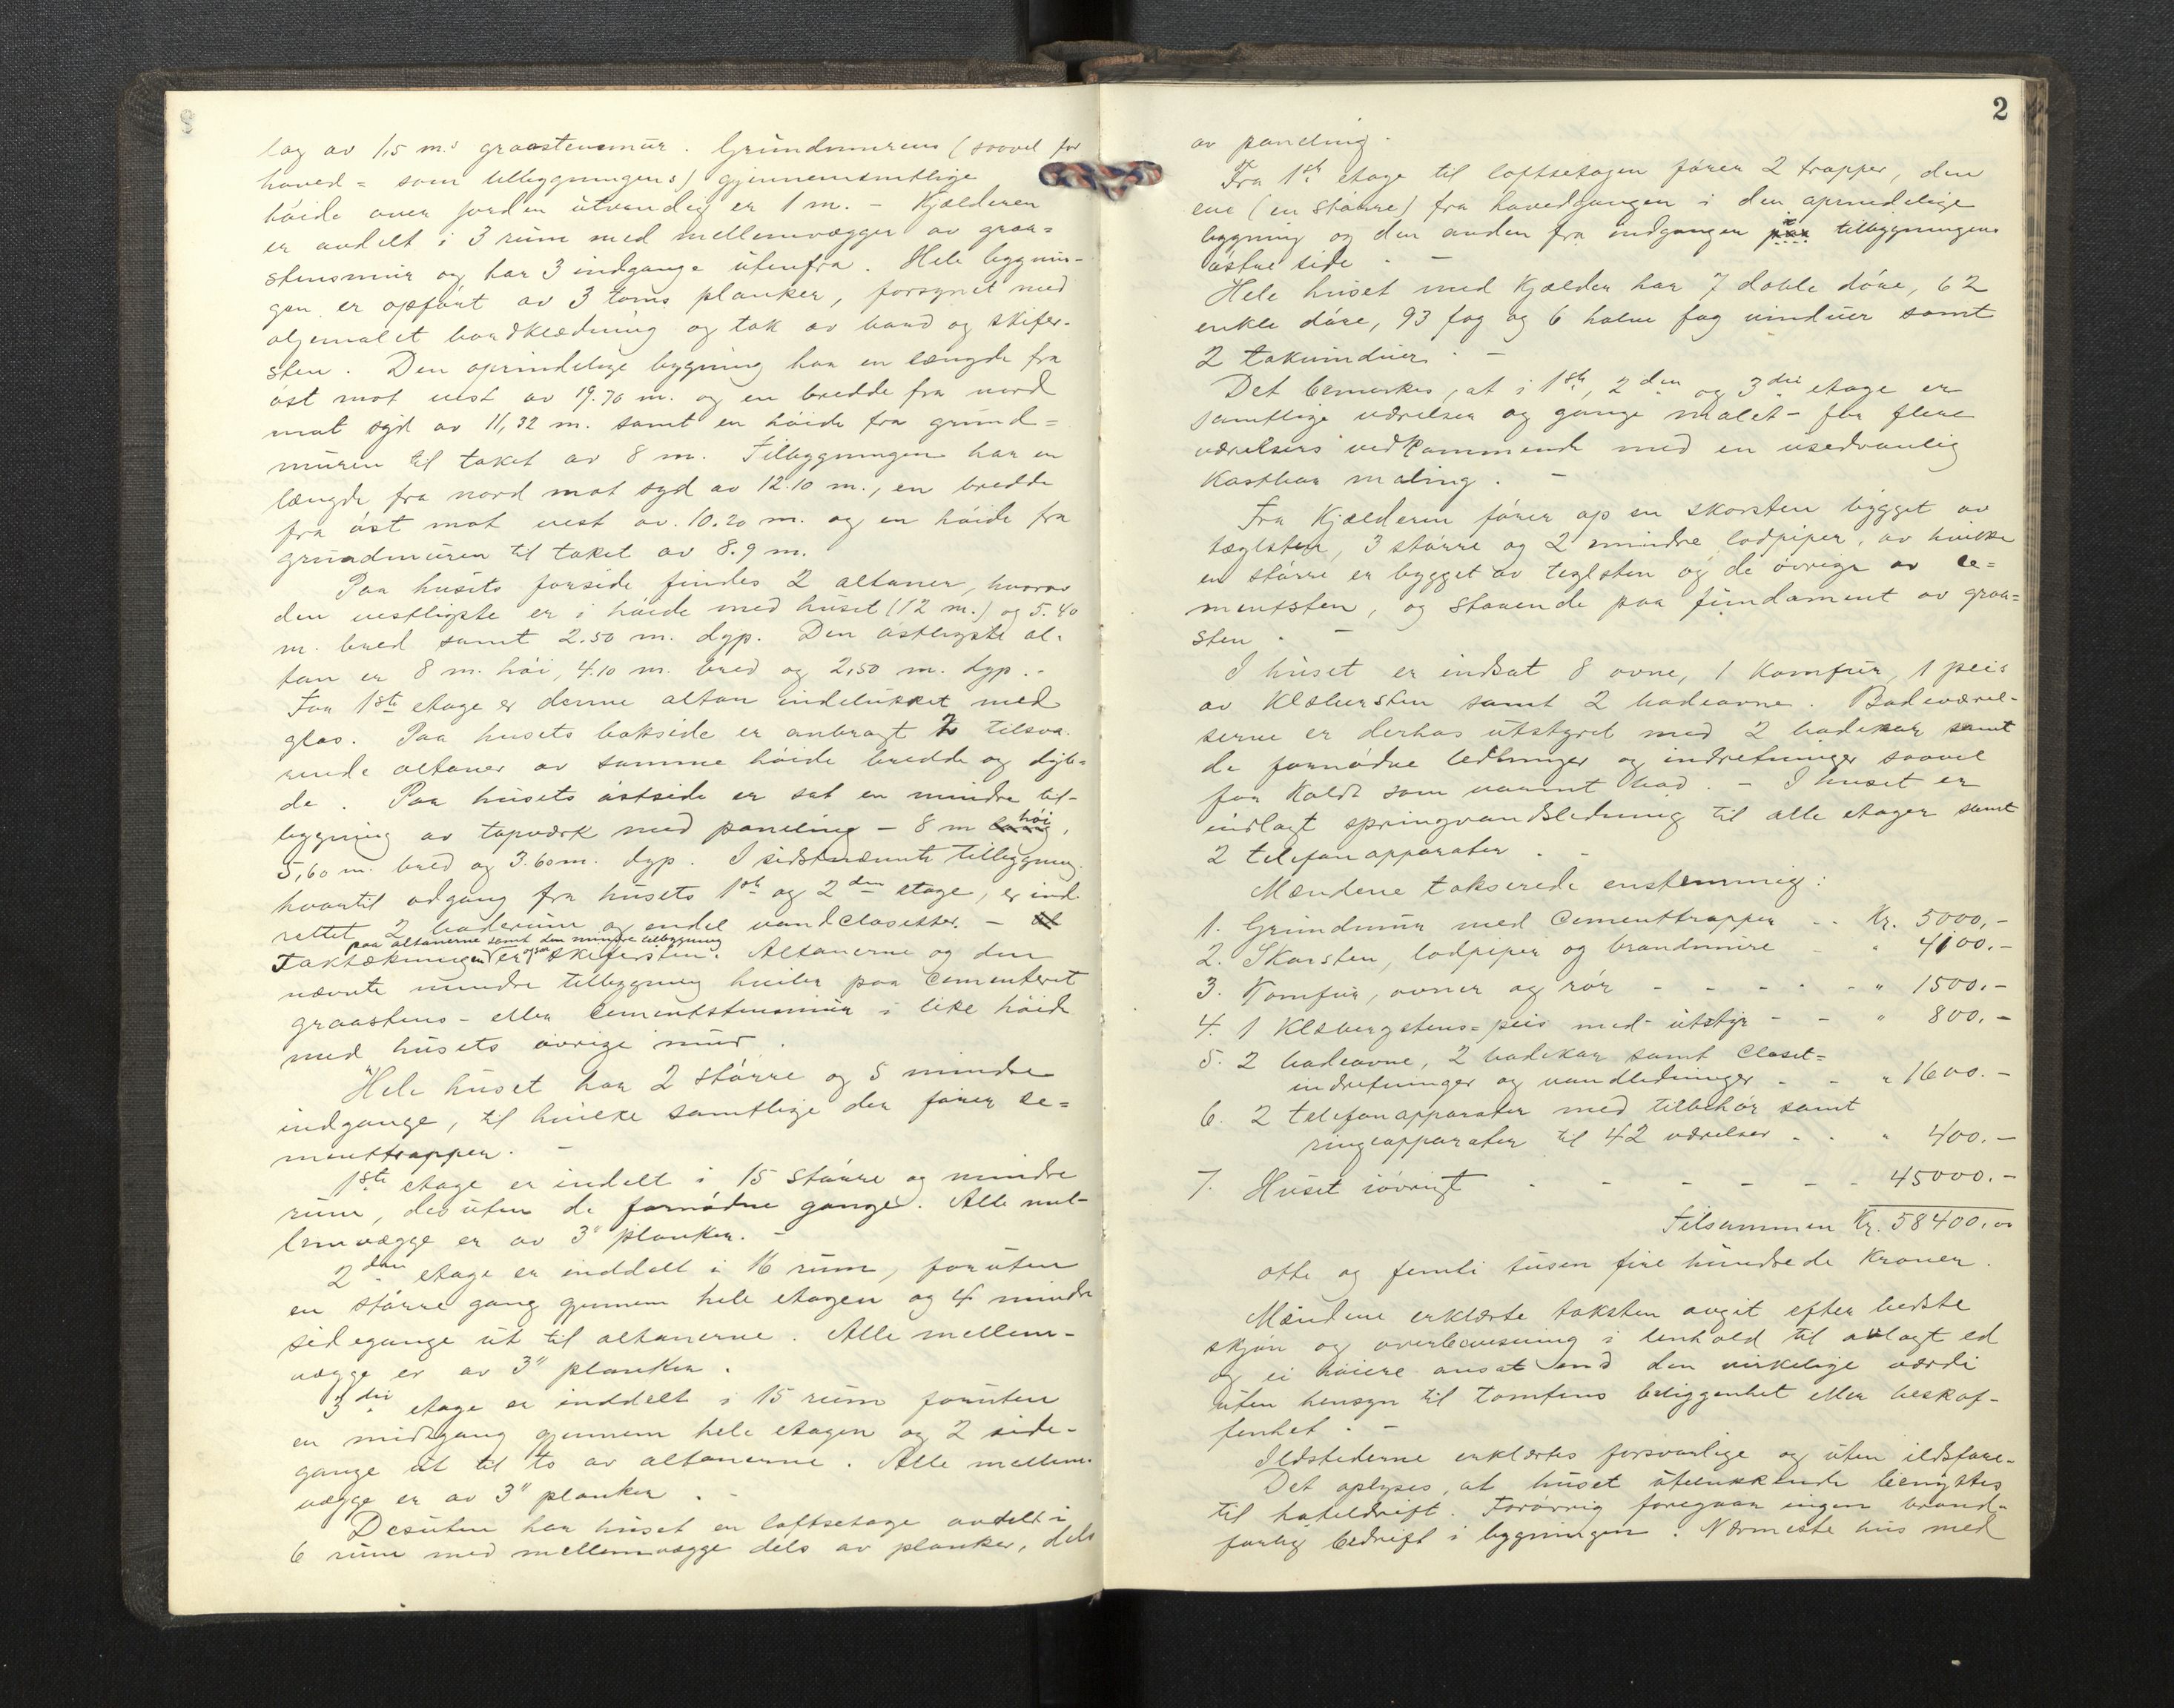 lag av 1,5 m.s graastensmur. Grundmurens (saavel for
hoved= som tilbygningens) gjennemsnitlige
höide over jorden utvendig er 1 m. – Kjælderen
er avdelt i 3 rum med mellemvægger av graa=
stensmur og har 3 indgange utenfra. Hele bygnin-
gen er opfört av 3 toms planker, forsynet med
oljemalet bordklædning og tak av bord og skifer-
sten. Den oprindelige bygning har en længde fra
öst mot vest av 19.70 m. og en bredde fra nord
mot syd av 11,32 m. samt en höide fra grund=
muren til taket av 8 m. Tilbygningen har en
længde fra nord mot syd av 12.10 m., en bredde
fra öst mot vest av 10.20 m. og en höide fra
grundmuren til taket av 8.9 m.
Paa husets forside findes 2 altaner, hvorav
den vestligste er i höide med huset (12 m.) og 5.40
m. bred samt 2.50 m. dyp. Den östligste al-
tan er 8 m. höi, 4.10 m. bred og 2,50 m. dyp. -
For 1ste etage er denne altan indelukket med
glas. Paa husets bakside er anbragt 2 tilsva-
rende altaner av samme höide bredde og dyb-
de. Paa husets östside er sat en mindre til-
bygning av tapværk med paneling – 8 m höi,
5,60 m. bred og 3.60 m. dyp. I sidstnævnte tilbygning
hvortil adgang fra husets 1ste og 2den etage, er ind-
rettet 2 baderum og endel vandclosetter. –
paa altanerne samt den mindre tilbygning
Taktækningen er og skifersten. Altanerne og den
nævnte mindre tilbygning hviler paa cementeret
graastens- eller cementstensmur i like höide
med husets övrige mur.
Hele huset har 2 större og 5 mindre
indgange, til hvilke samtlige der förer ce=
menttrapper. –
1ste etage er indelt i 15 större og mindre
rum, desuten de fornödne gange. Alle mel-
lemvægge er av 3" planker. –
2den etage er inddelt i 16 rum, foruten
en större gang gjennem hele etagen og 4 mindre
sidegange ut til altanerne. Alle mellem-
vægge er av 3" planker.
3die etage er inddelt i 15 rum foruten
en midtgang gjennem hele etagen og 2 side-
gange ut til to av altanerne. Alle mellem-
vægge er av 3" planker. –
Desuten har huset en loftsetage avdelt i
6 rum med mellemvægge dels av planker, dels
2
av paneling.
Fra 1ste etage til loftsetagen förer 2 trapper, den
ene (en större) fra hovedgangen i den oprindelige
bygning og den anden fra indgangen paa tilbygningens
östre side. –
Hele huset med Kjælder har 7 doble döre, 62
enkle döre, 93 fag og 6 halve fag vinduer samt
2 takvinduer. –
Det bemerkes, at i 1ste, 2den og 3die etage er
samtlige værelser og gange malet – for flere
værelsers vedkommende med en usedvanlig
Kostbar maling. –
Fra Kjælderen förer op en skorsten bygget av
teglsten, 3 större og 2 mindre lodpiper, av hvilke
en större er bygget av teglsten og de övrige av ce=
mentsten, og staaende paa fundament av graa=
sten. –
I huset er indsat 8 ovne, 1 Komfur, 1 peis
av Klebersten samt 2 badeovne. Badeværel-
serne er derhos utstyret med 2 badekar samt
de fornödne ledninger og indretninger saavel
for Koldt som varmt bad. – I huset er
indlagt springvandsledning til alle etager samt
2 telefonapparater. –
Mændene takserede enstemmig:
1. Grundmur med Cementtrapper - - Kr. 5000,-
2. Skorsten, lodpiper og brandmure - " 4100.-
3. Komfur, ovner og rör - - - - - " 1500.-
4. 1 Klebergstens=peis med utstyr - - " 800.-
5. 2 badeovne, 2 badekar samt Closet=
indretninger og vandledninger - - " 1600.-
6. 2 telefonapparater med tilbehör samt
ringeapparater til 42 værelser - - " 400.-
7. Huset iövrigt - - - - - - 45000.-
Tilsammen Kr. 58400.00
otte og femti tusen fire hundrede Kroner.
Mændene erklærte taksten avgit efter bedste
skjön og overbevisning i henhold til avlagt ed
og ei höiere ansat end den virkelige værdi
uten hensyn til tomtens beliggenhet eller beskaf-
fenhet. –
Ildstederne erklærtes forsvarlige og uten ildsfare.
Det oplyses, at huset utelukkende benyttes
til hoteldrift. Forövrig foregaar ingen brand-
farlig bedrift i bygningen. Nærmeste hus med